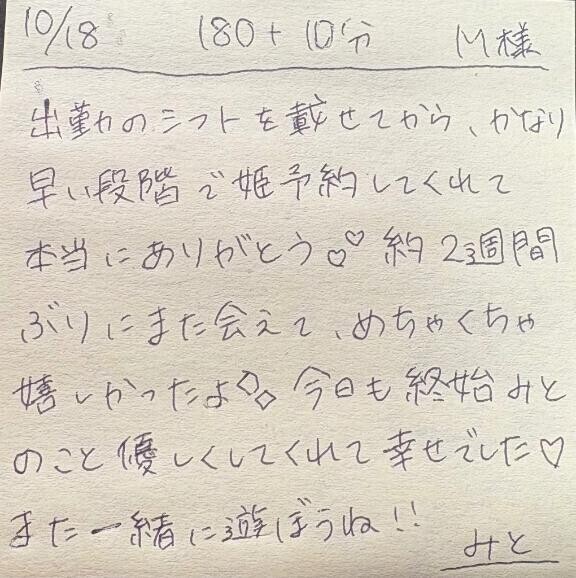 10/18 180+10分 M様
出勤のシフトを載せてから、かなり
早い段階で姫予約してくれて
本当にありがとう♡♡ 約2週間
ぶりにまた会えて、めちゃくちゃ
嬉しかったよ◇◇ 今日も終始みと
のこと優しくしてくれて幸せでした♡
また一緒に遊ぼうね!!
みと